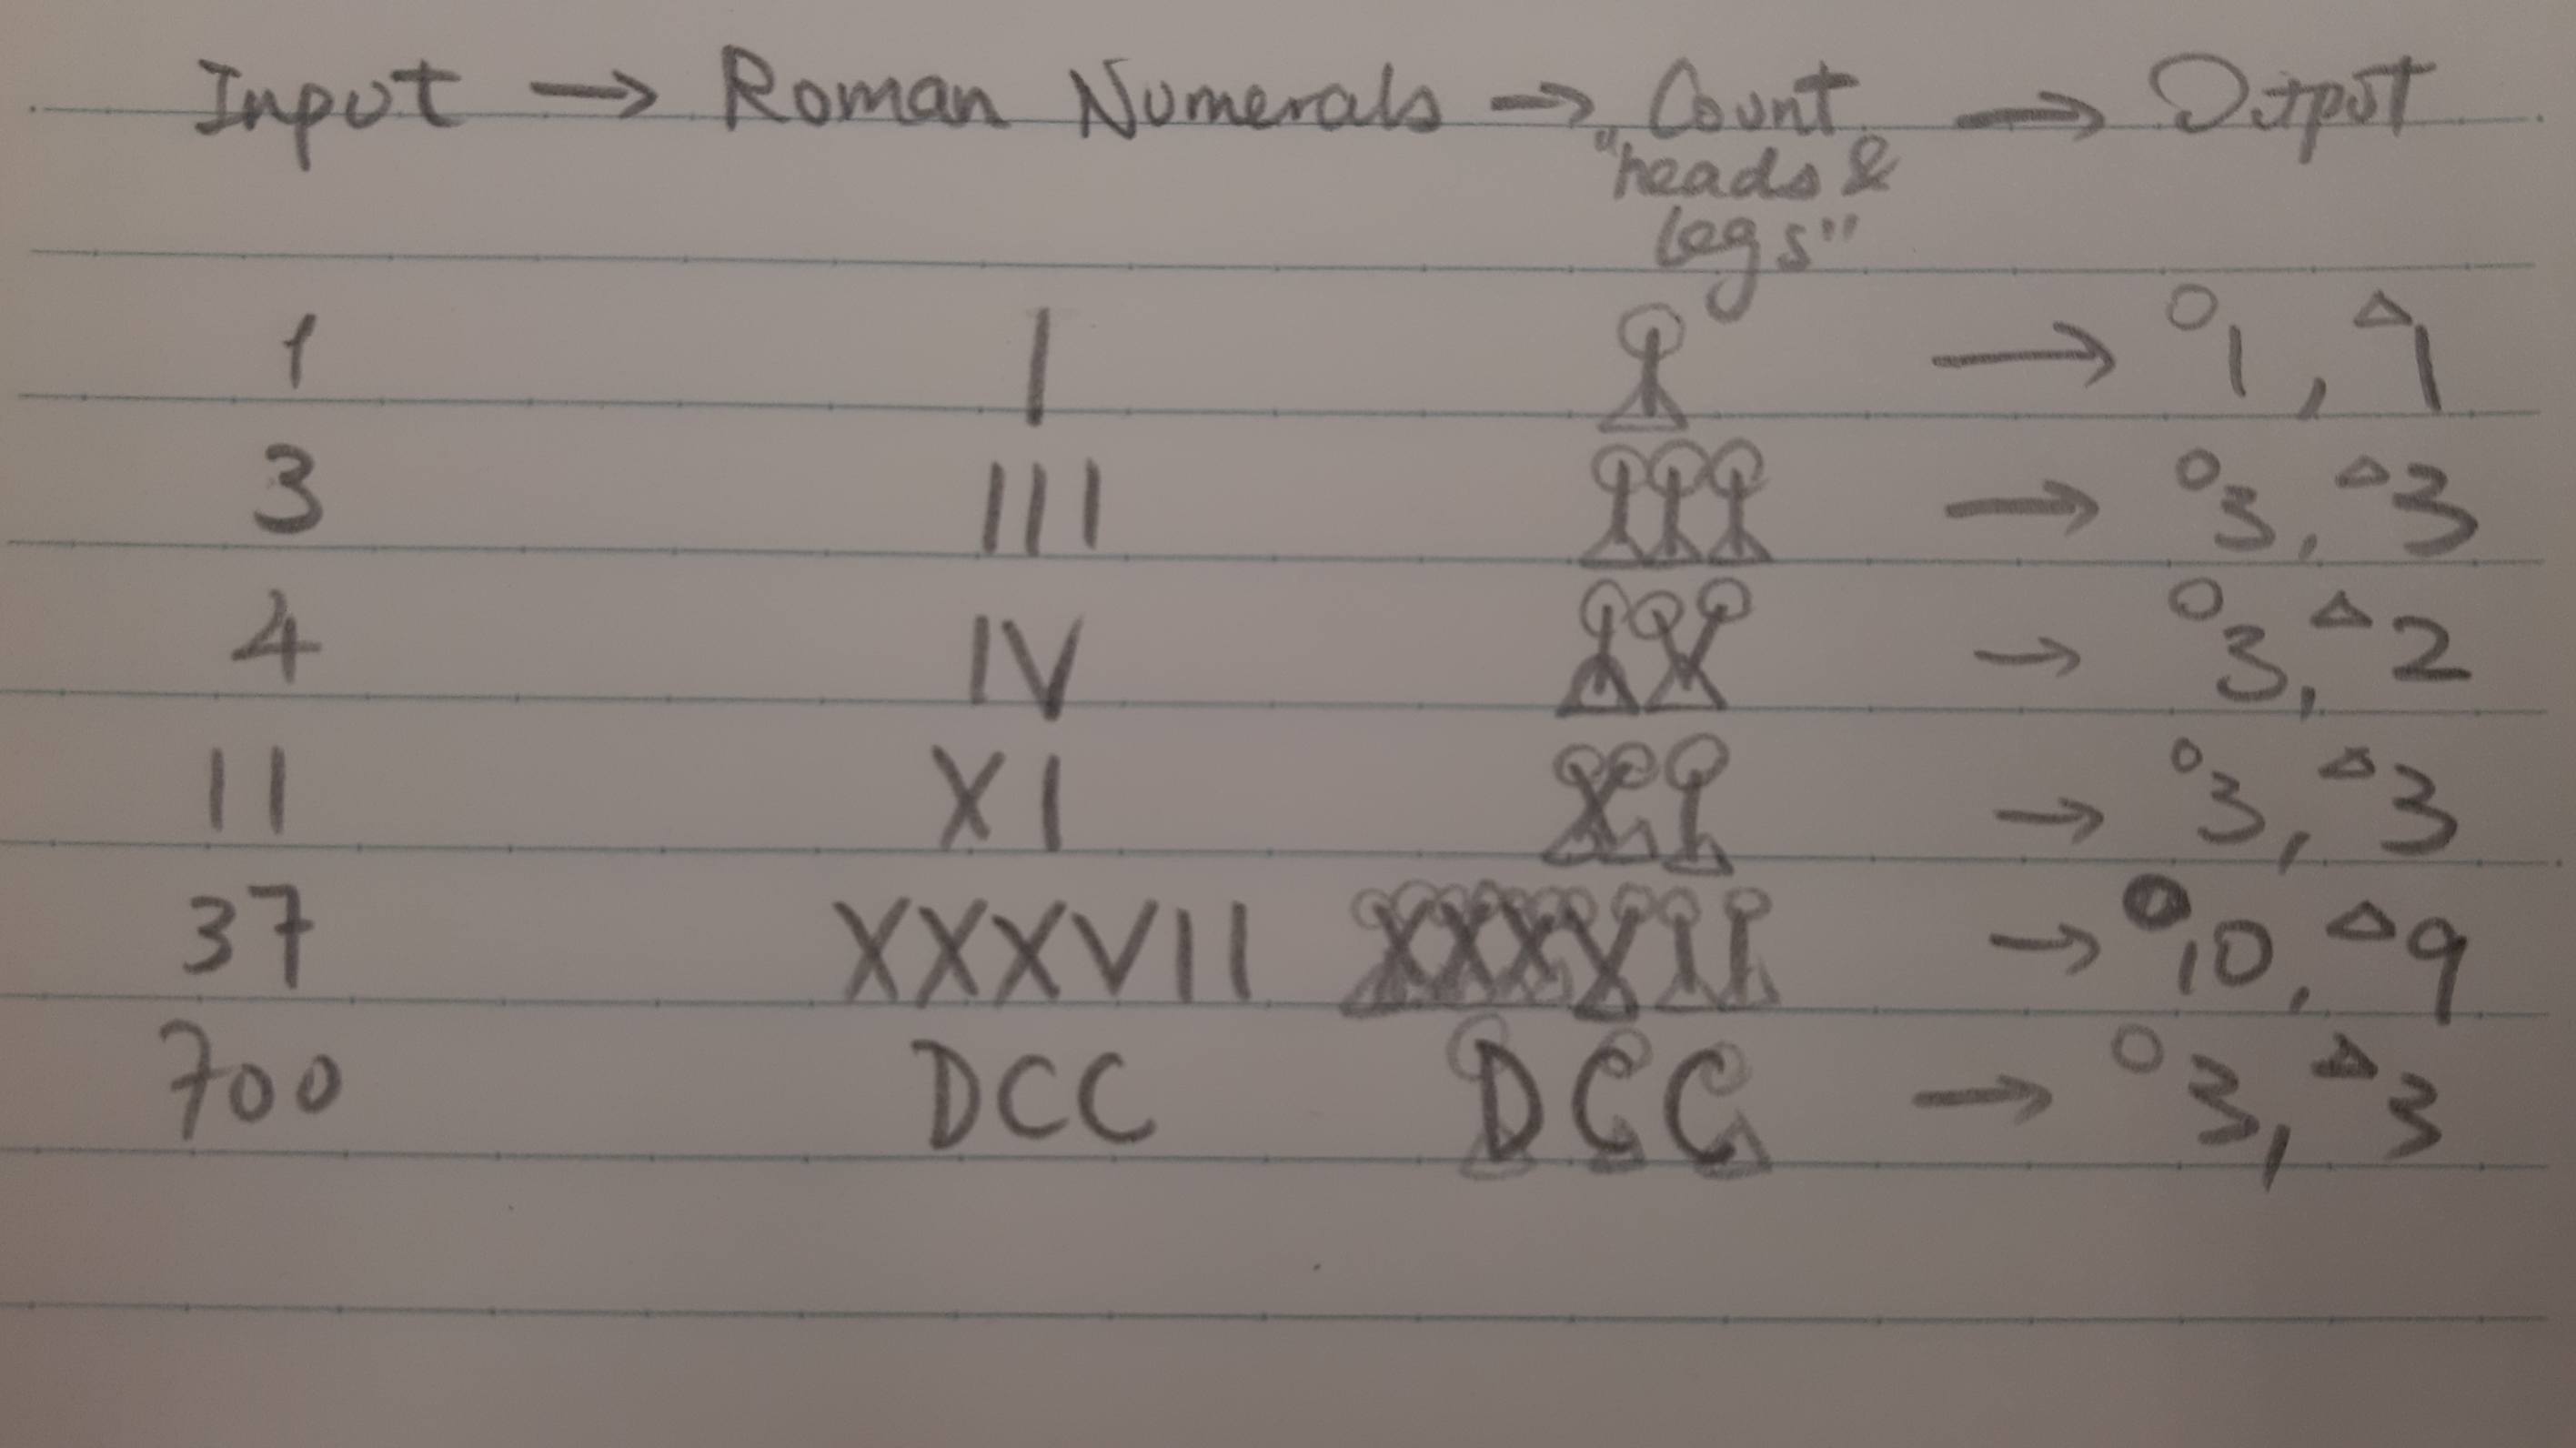 Input → Roman Numerals → Count → Output
"heads &
legs"
1 I → ○1, △1
3 III → ○3, △3
4 IV IV → ○3, △2
11 XI XI → ○3, △3
37 XXXVII XXXVII → ○10, △9
700 DCC DCC → ○3, △3